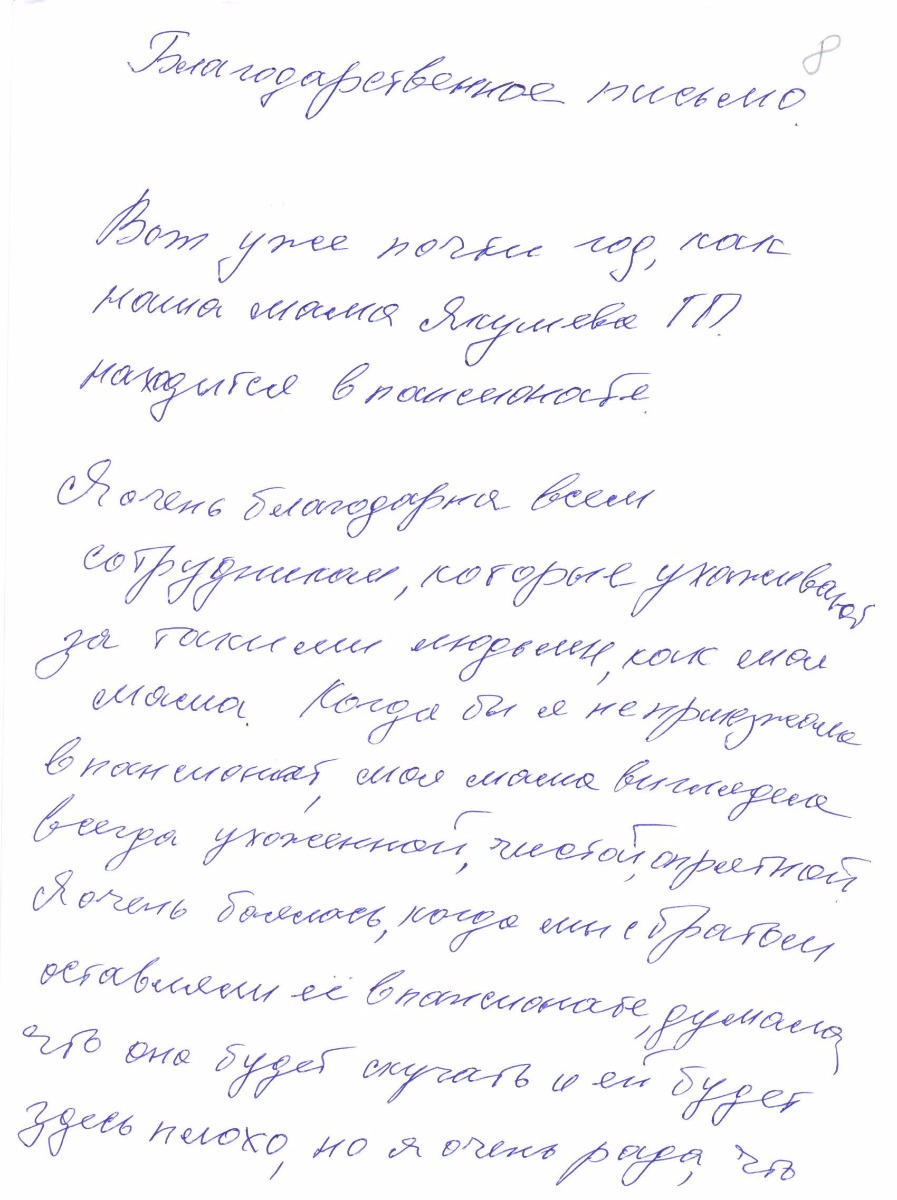 8
Благодарственное письмо.
Вот уже почти год, как
наша мама Якушева Г.П.
находится в пансионате.
Я очень благодарна всем
сотрудникам, которые ухаживают
за такими людьми, как моя
мама. Когда бы я не приезжала
в пансионат, моя мама выглядела
всегда ухоженной, чистой, опрятной.
Я очень боялась, когда мы с братом
оставляли её в пансионате, думала,
что она будет скучать и ей будет
здесь плохо, но я очень рада, что